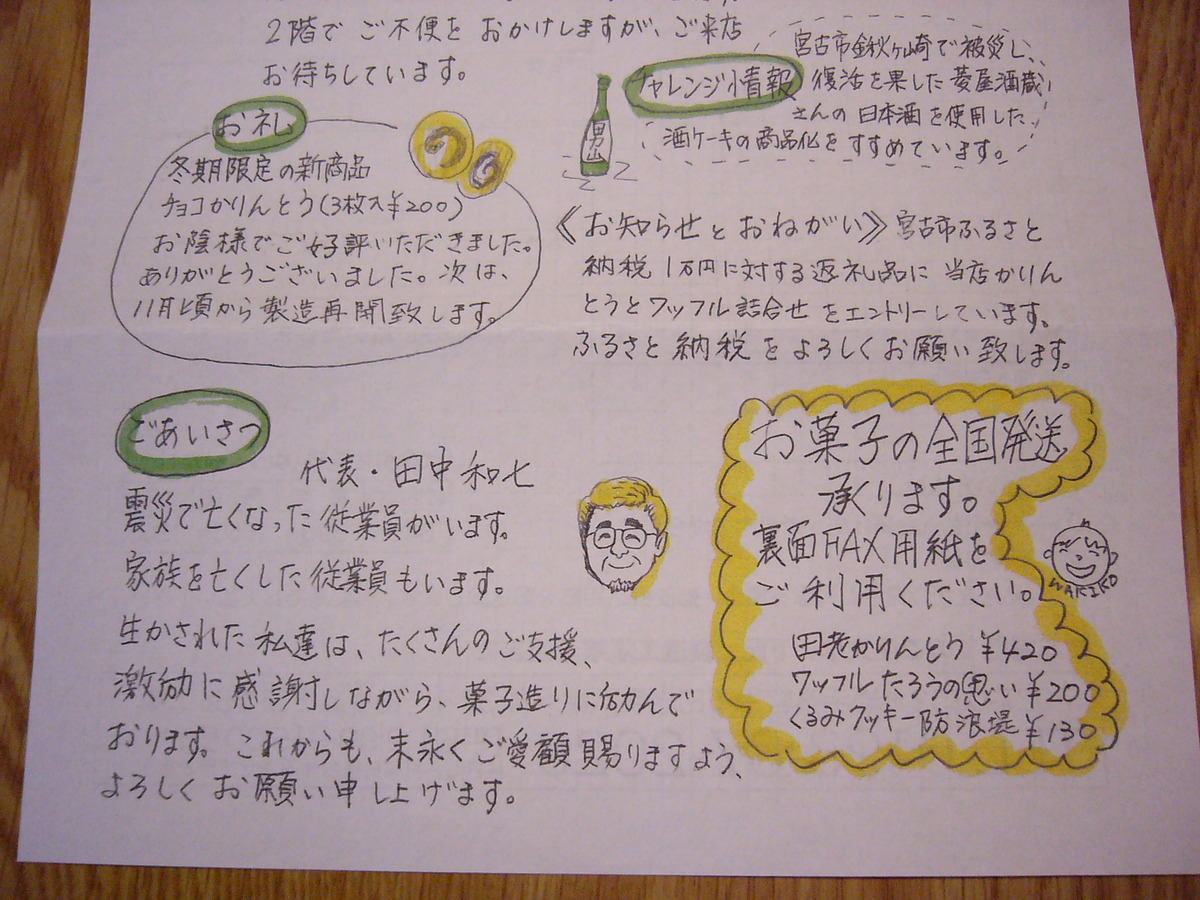 2階でご不便をおかけしますが、ご来店
お待ちしています。
チャレンジ情報
宮古市鍬ヶ崎で被災し、
復活を果した菱屋酒蔵
さんの日本酒を使用した
酒ケーキの商品化をすすめています。
男山
お礼
冬期限定の新商品
チョコかりんとう(3枚入¥200)
お陰様でご好評いただきました。
ありがとうございました。次は、
11月頃から製造再開致します。
《お知らせとおねがい》宮古市ふるさと
納税1万円に対する返礼品に当店かりん
とうとワッフル詰合せをエントリーしています。
ふるさと納税をよろしくお願い致します。
ごあいさつ
代表・田中和七
震災で亡くなった従業員がいます。
家族を亡くした従業員もいます。
生かされた私達は、たくさんのご支援、
激励に感謝しながら、菓子造りに励んで
おります。これからも、末永くご愛顧賜りますよう、
よろしくお願い申し上げます。
お菓子の全国発送
承ります。
裏面FAX用紙を
ご利用ください。
MARIKO
田老かりんとう ¥420
ワッフルたろうの思い ¥200
くるみクッキー防浪堤 ¥130